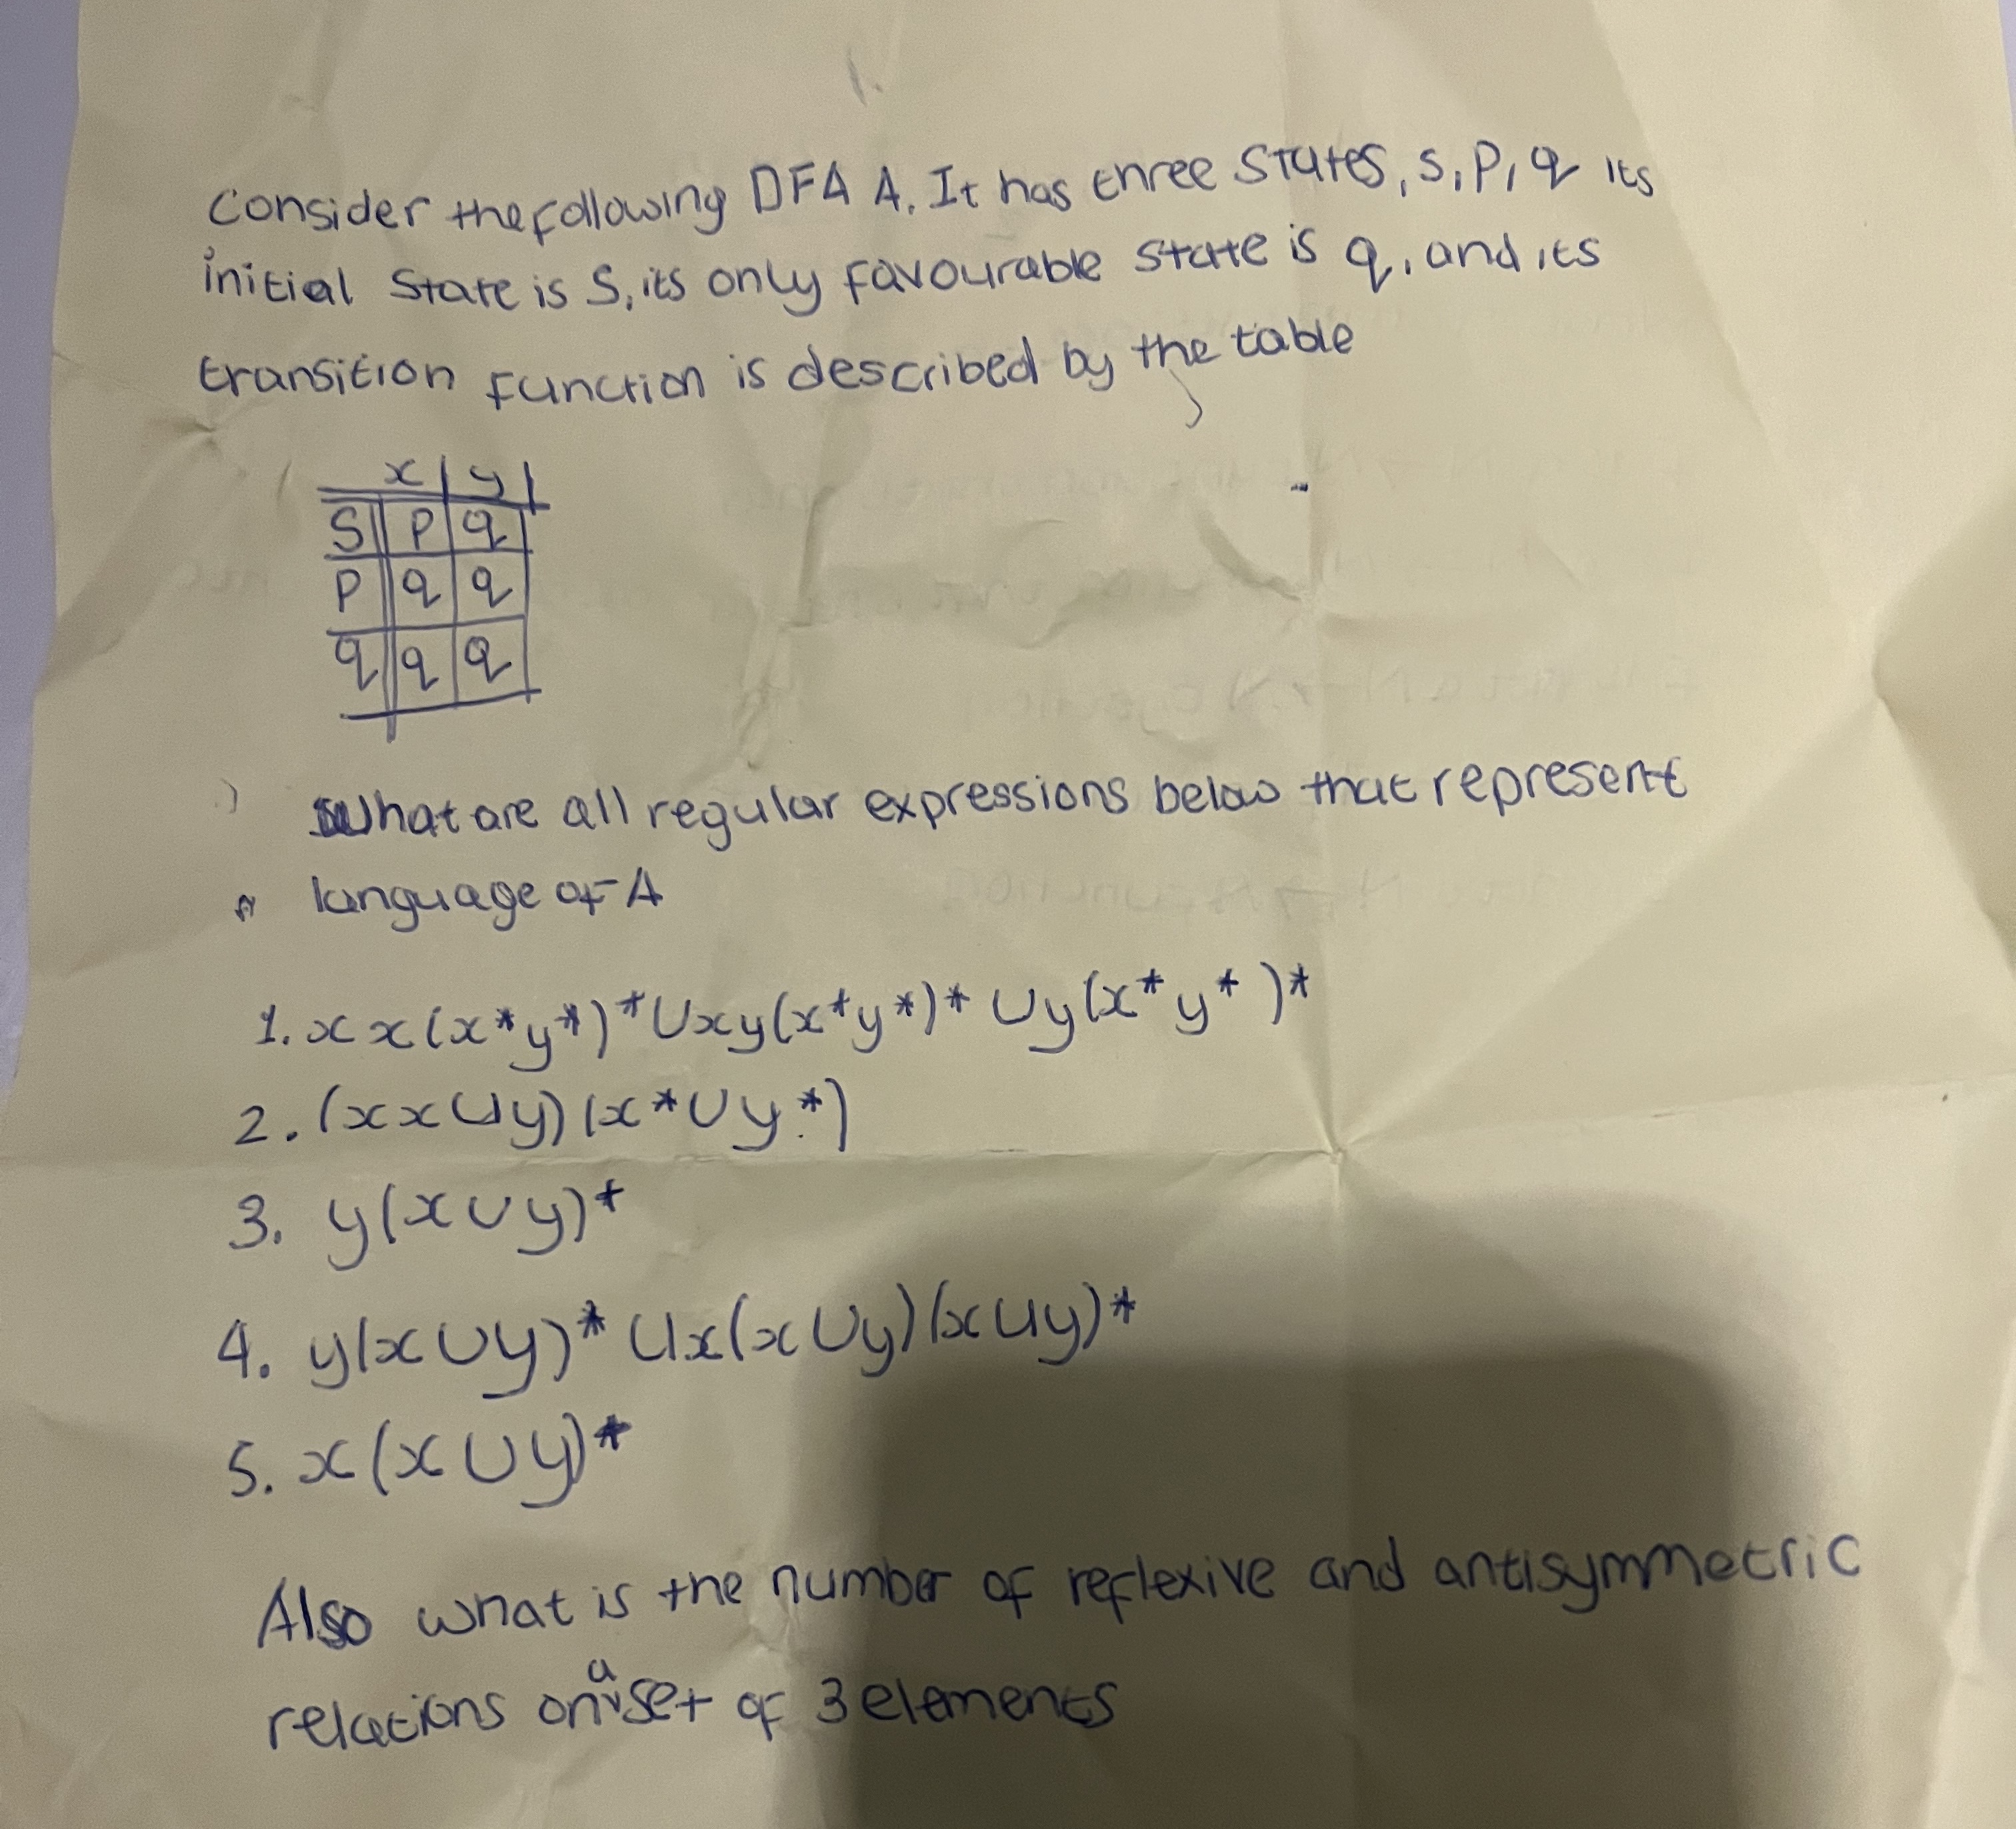 Consider the following DFA A. It has three states, s, p, q its
initial state is S, its only favourable state is q, and its
transition function is described by the table
x | y |
S p q
p q q
q q q
What are all regular expressions below that represent
language of A
1. xx(x*y*)*∪xy(x*y*)* ∪y(x*y*)*
2. (xx∪y)(x*∪y*)
3. y(x∪y)*
4. y(x∪y)* ∪x(x∪y)(x∪y)*
5. x(x∪y)*
Also what is the number of reflexive and antisymmetric
relations on a set of 3 elements